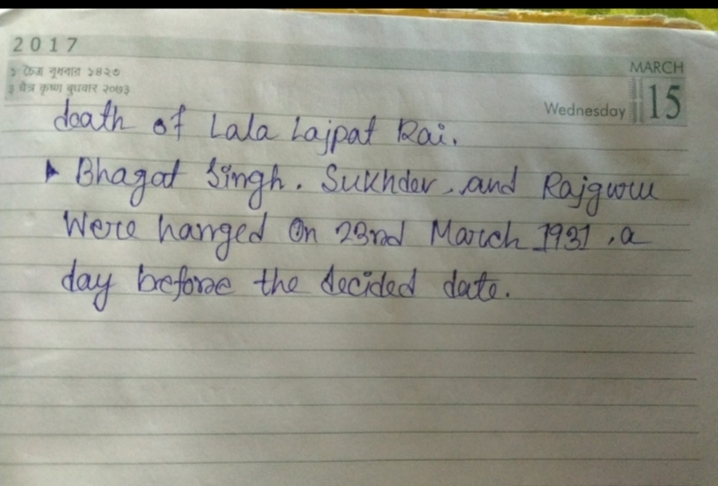 2017
MARCH
৩ চৈত্র কৃষ্ণ বুধবার
Wednesday 15
death of Lala Lajpat Rai.
Bhagat Singh. Sukhdev, and Rajguru
Were hanged On 23rd March 1931, a
day before the decided date.